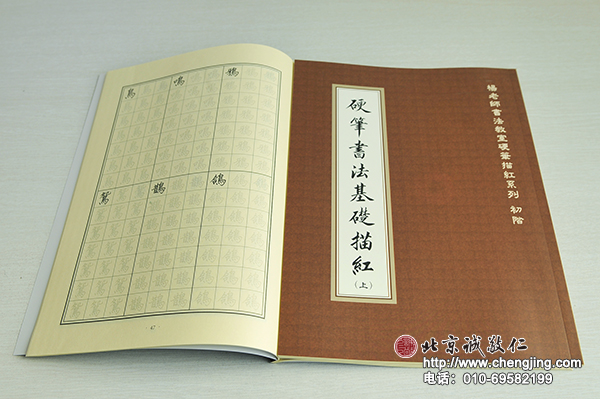 楊老師書法教室硬筆描紅系列 初階
硬筆書法基礎描紅
（上）
鳴
鳥
鴿
鵲
北京诚敬仁
www.chengjing.com
电话：010-69582199